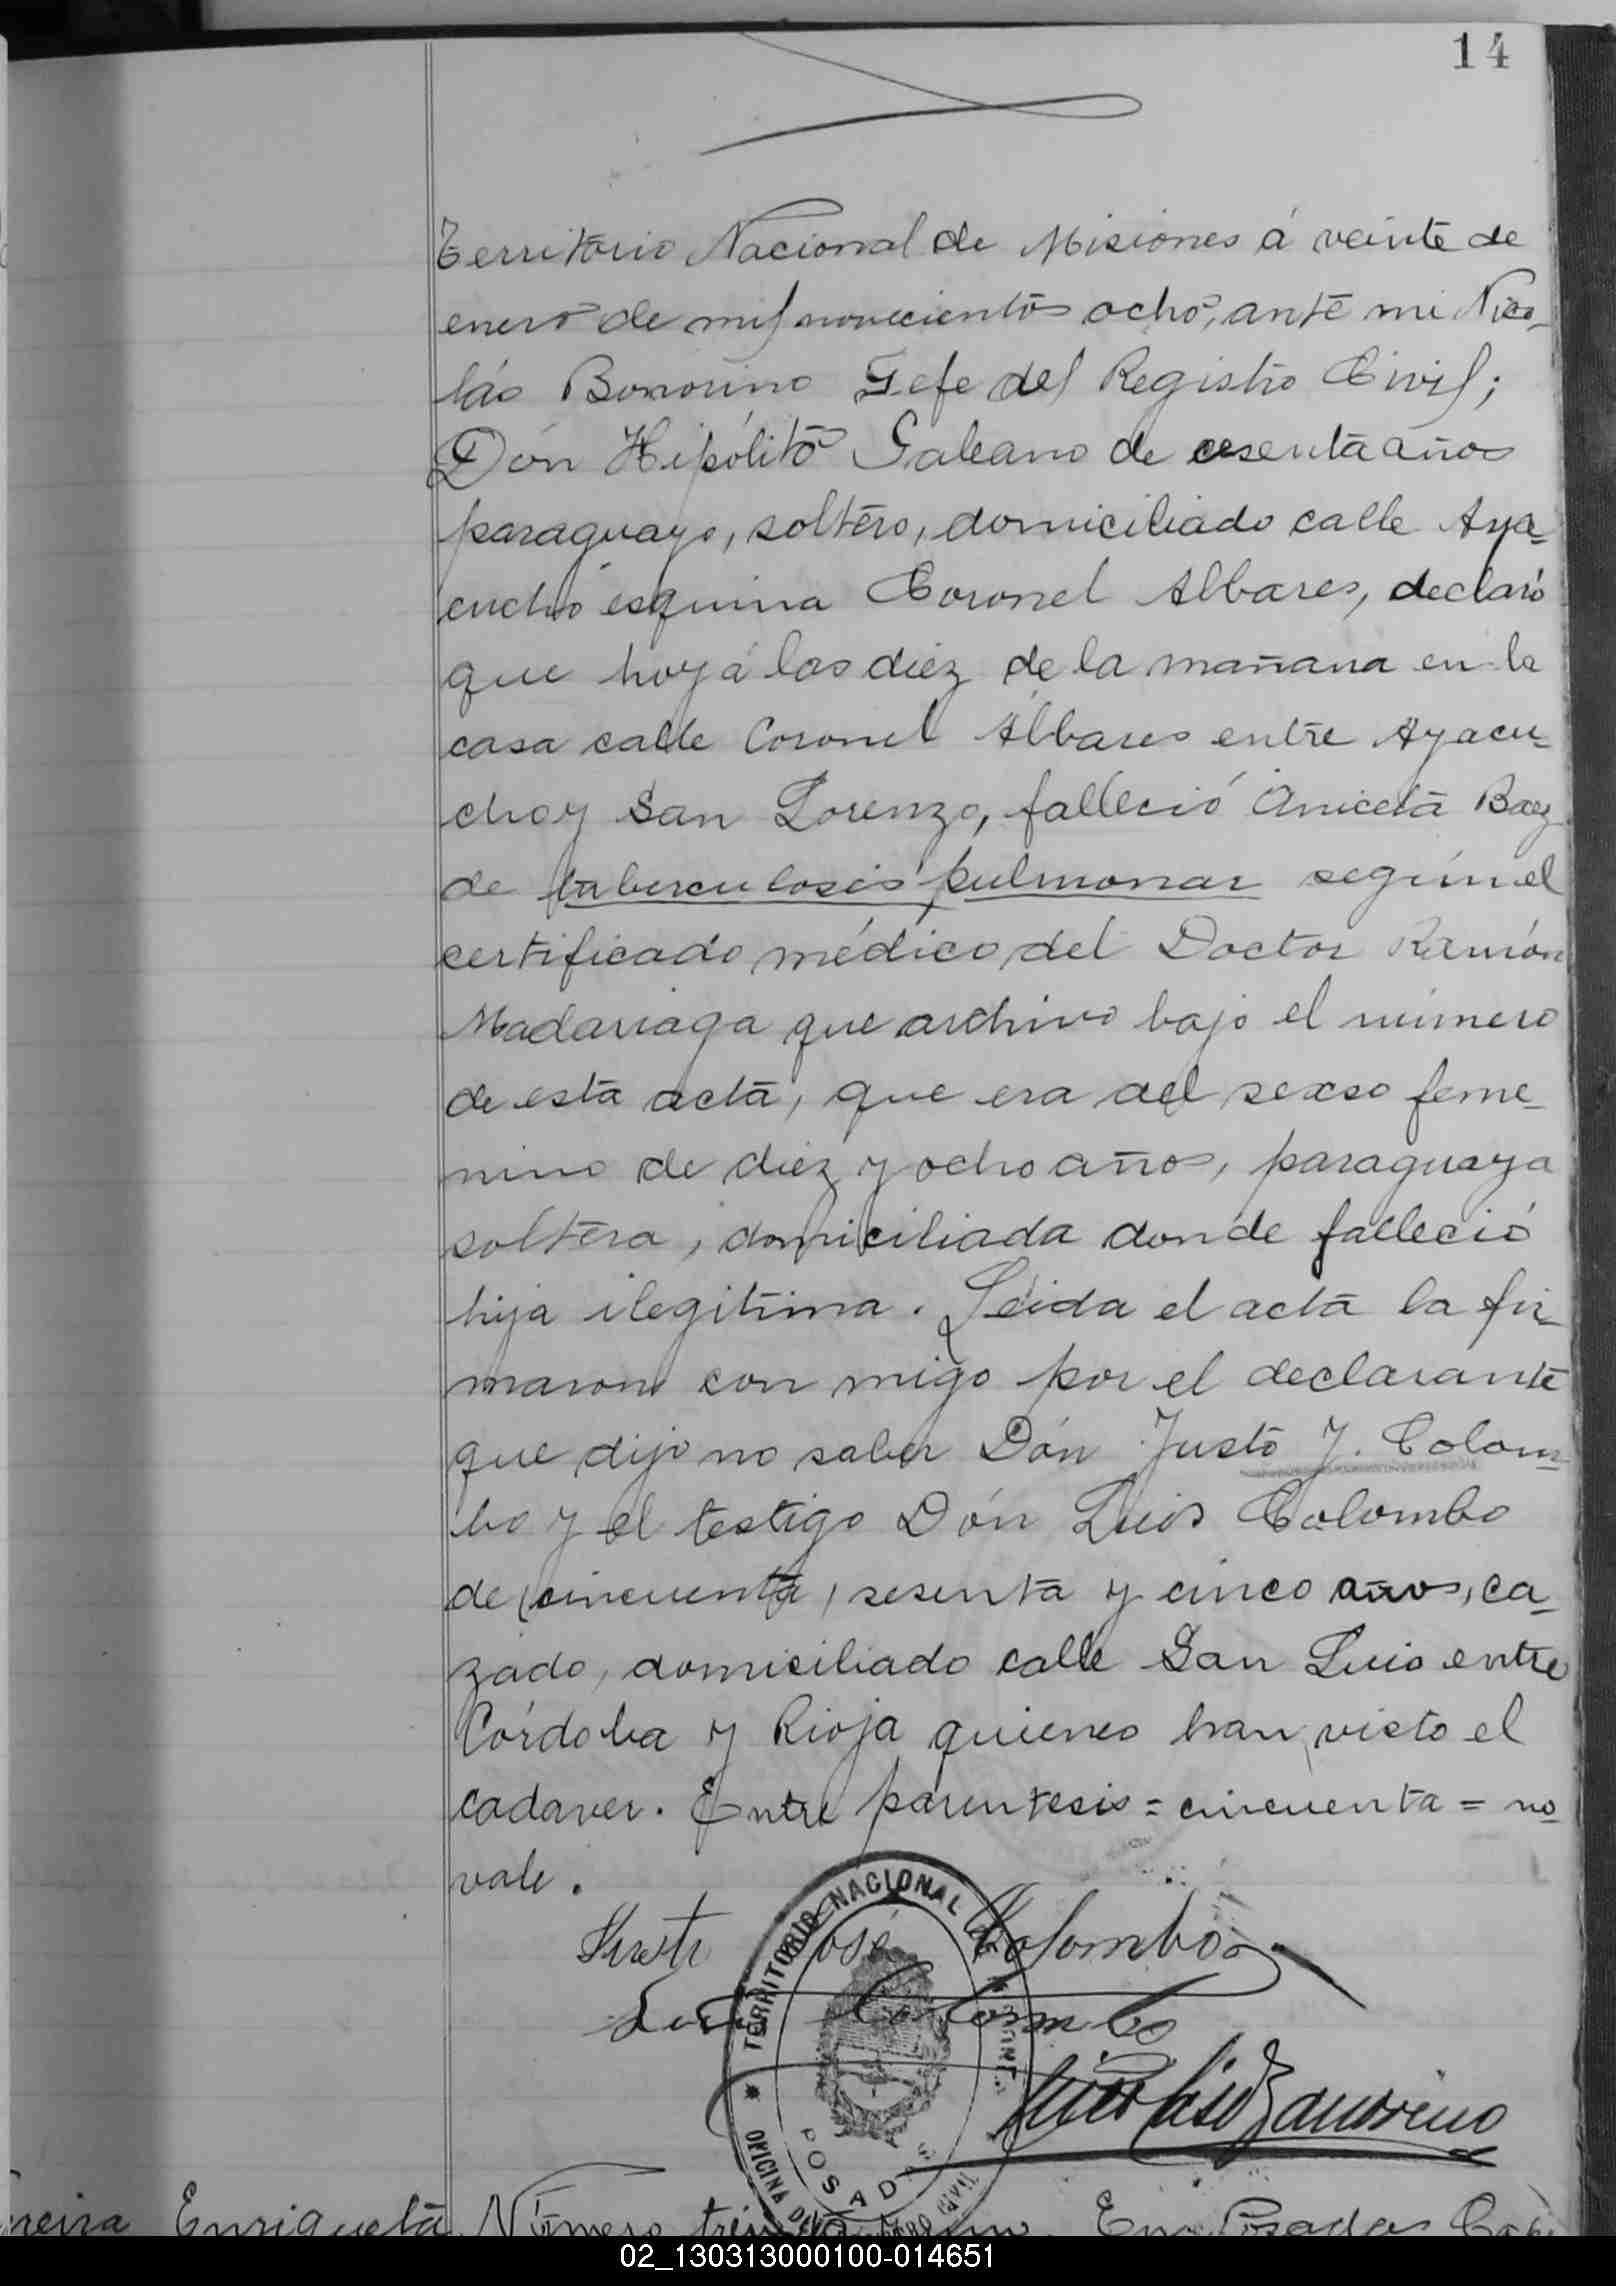 14
Territorio Nacional de Misiones á veinte de
enero de mil novecientos ocho, ante mi Nico-
lás Bonorino Gefe del Registro Civil;
Dón Hipólito Galeano de sesenta años
paraguayo, soltero, domiciliado calle Aya-
cucho esquina Coronel Albares, declaró
que hoy á las diez de la mañana en la
casa calle Coronel Albares entre Ayacu-
cho y San Lorenzo, falleció Aniceta Baez
de tuberculosis pulmonar según el
certificado médico del Doctor Ramón
Madariaga que archivo bajo el número
de esta acta, que era del sexso feme-
nino de diez y ocho años, paraguaya
soltera, domiciliada donde falleció
hija ilegitima. Leida el acta la fir-
maron con migo por el declarante
que dijo no saber Dón Justo J. Colom-
bo y el testigo Dón Luis Colombo
de (cincuenta) sesenta y cinco años, ca-
zado, domiciliado calle San Luis entre
Córdoba y Rioja quienes han visto el
cadaver. Entre parentesis = cincuenta = no
vale.
Justo José Colombo
Luis Colombo
Nicolás Bonorino
TERRITORIO NACIONAL DE MISIONES
OFICINA DEL REGISTRO CIVIL
POSADAS
Enriqueta Número treinta En Posadas Capi
02_130313000100-014651